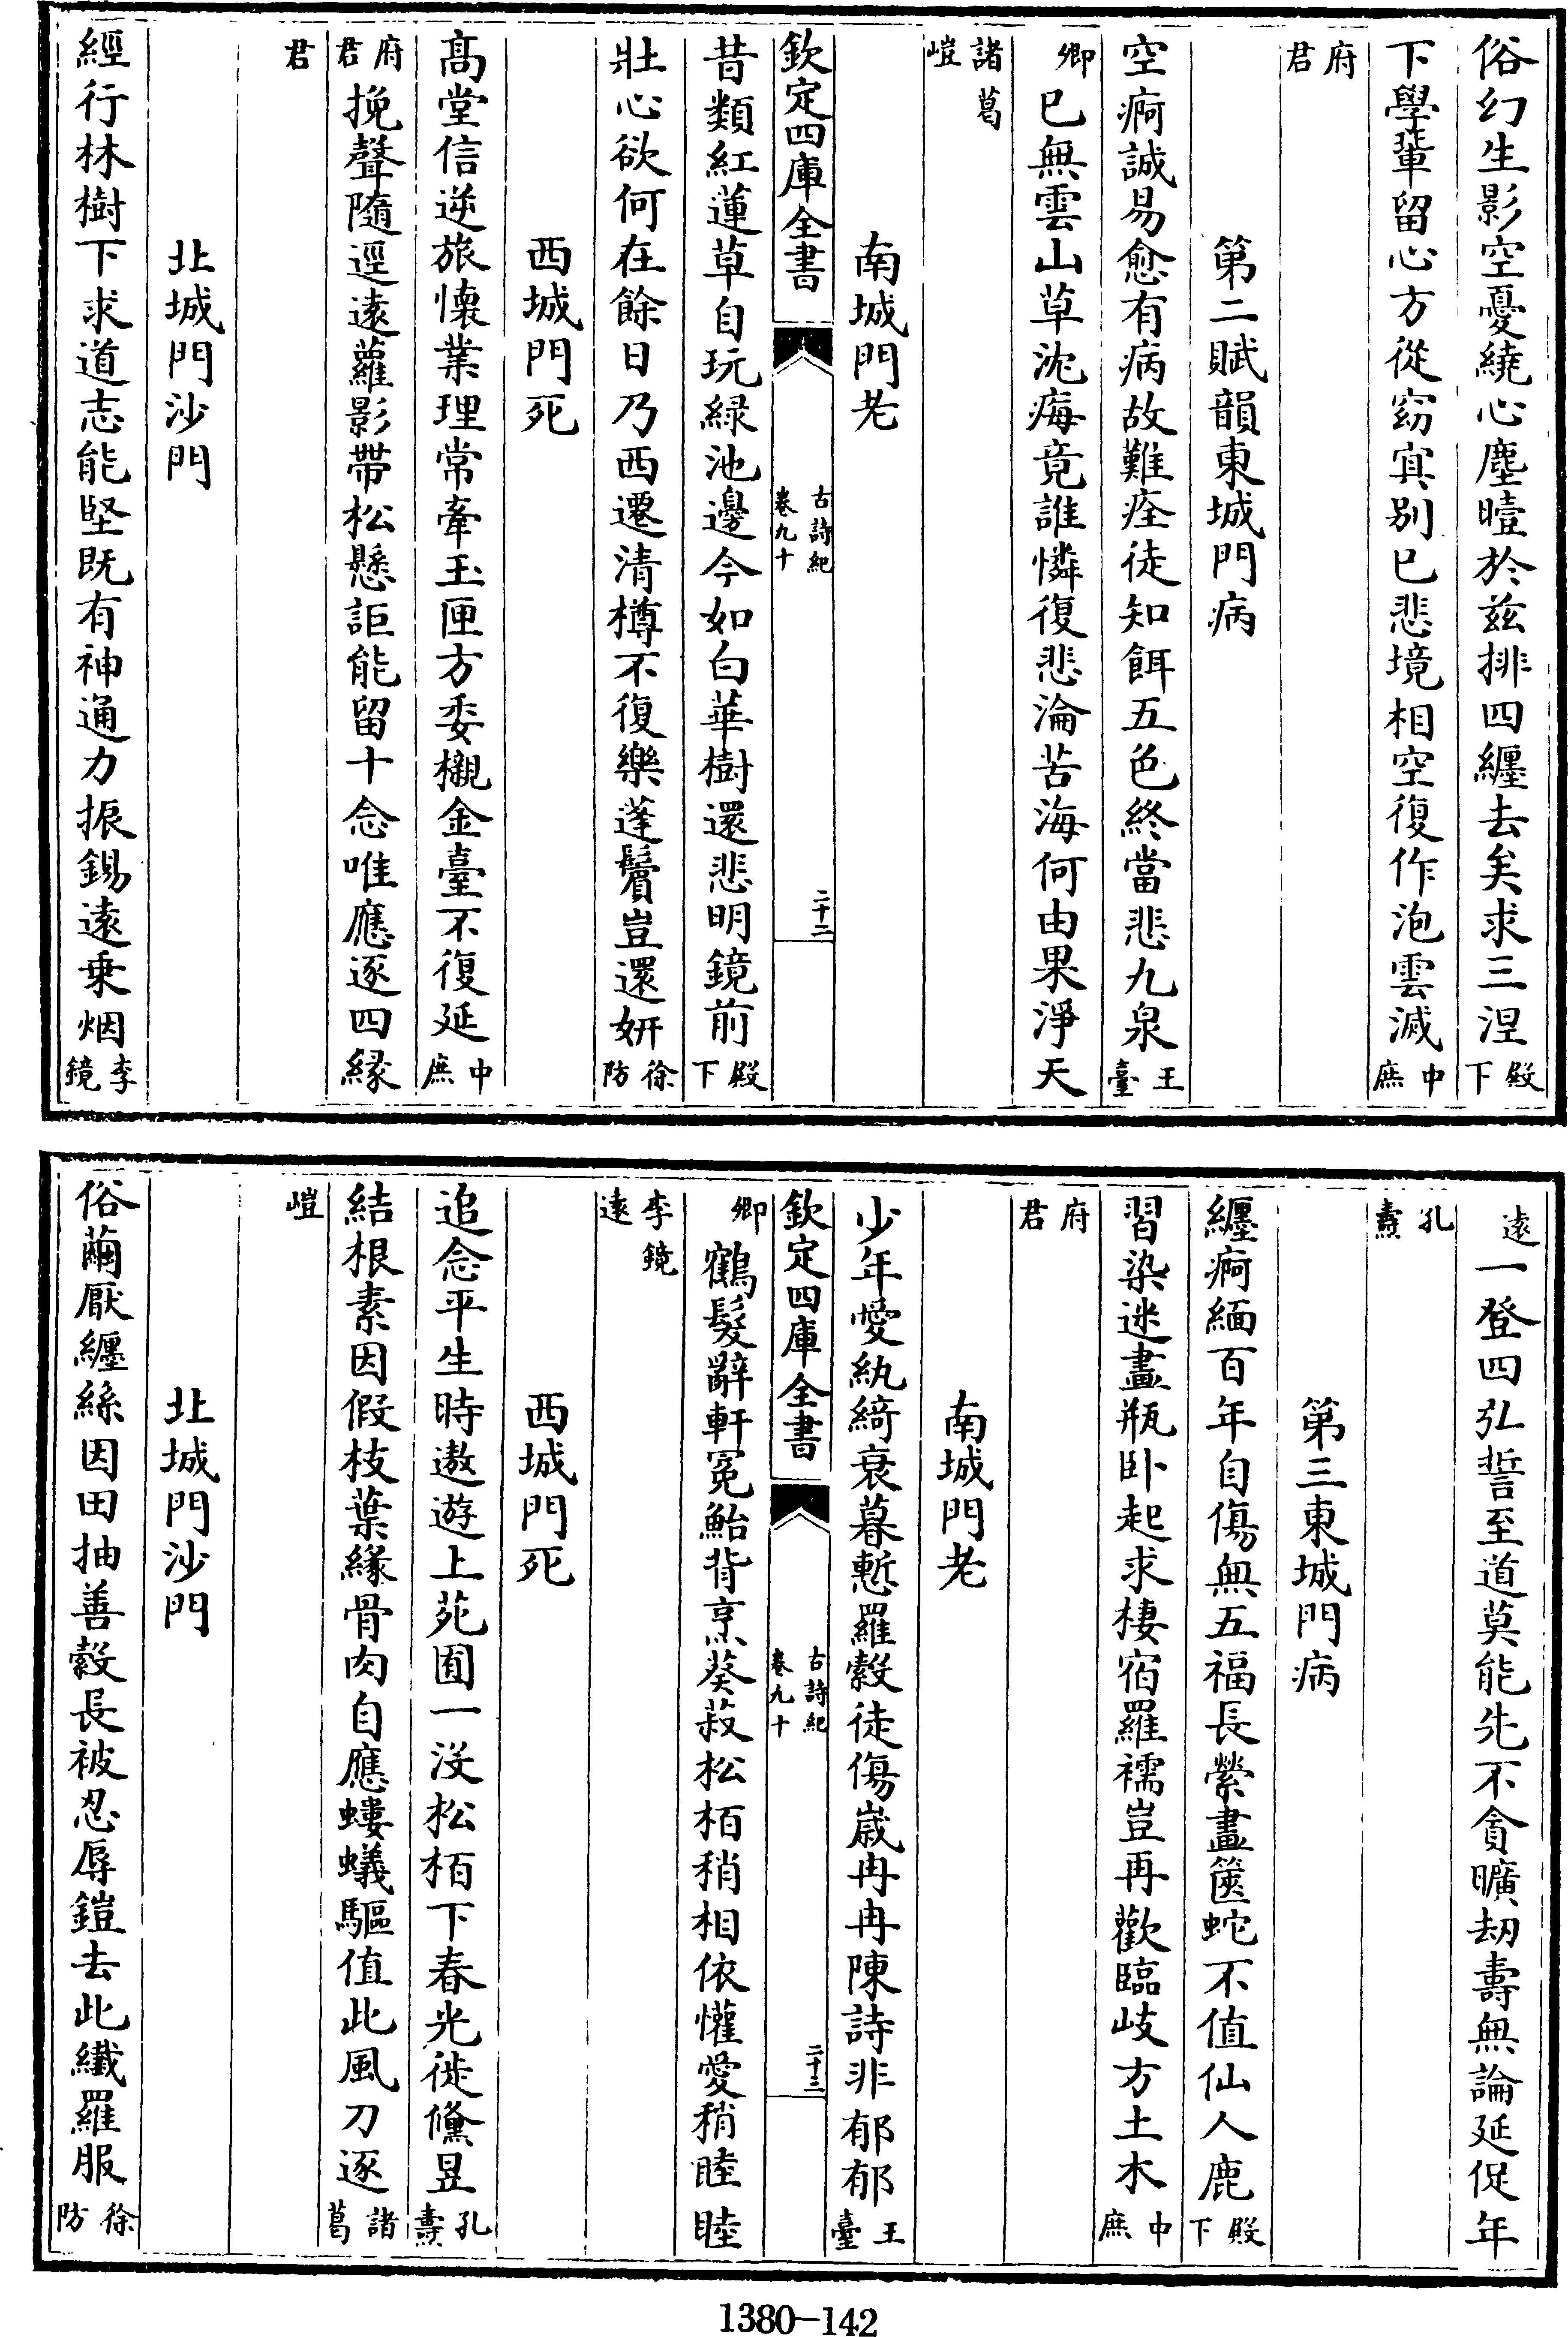 俗幻生影空憂繞心塵曀於兹排四纏去矣求三涅殿下
下學輩留心方從窈冥别已悲境相空復作泡雲滅中庶
府君
第二賦韻東城門病
空痾誠易愈有病故難痊徒知餌五色終當悲九泉王臺
卿已無雲山草沈痗竟誰憐復悲淪苦海何由果淨天
諸葛嵦
南城門老
欽定四庫全書
古詩紀
卷九十
二十二
昔類紅蓮草自玩緑池邊今如白華樹還悲明鏡前殿下
壯心欲何在餘日乃西遷清樽不復樂蓬鬢豈還妍徐防
西城門死
髙堂信逆旅懐業理常牽玉匣方委櫬金臺不復延中庶
府君挽聲隨逕逺蘿影帶松懸詎能留十念唯應逐四縁
君
北城門沙門
經行林樹下求道志能堅既有神通力振錫逺乗烟李鏡
逺一登四弘誓至道莫能先不貪曠刼壽無論延促年
孔燾
第三東城門病
纏痾緬百年自傷無五福長縈畫篋蛇不值仙人鹿殿下
習染迷畫瓶卧起求棲宿羅襦豈再歡臨岐方土木中庶
府君
南城門老
少年愛紈綺衰暮慙羅縠徒傷嵗冉冉陳詩非郁郁王臺
欽定四庫全書
古詩紀
卷九十
二十三
卿鶴髮辭軒冕鮐背烹葵菽松栢稍相依懽愛稍睦睦
李鏡逺
西城門死
追念平生時遨遊上苑囿一没松栢下春光徙儵昱孔燾
結根素因假枝葉緣骨肉自應螻蟻驅值此風刀逐諸葛
嵦
北城門沙門
俗繭厭纏絲因田抽善穀長被忍辱鎧去此纎羅服徐防
1380—142